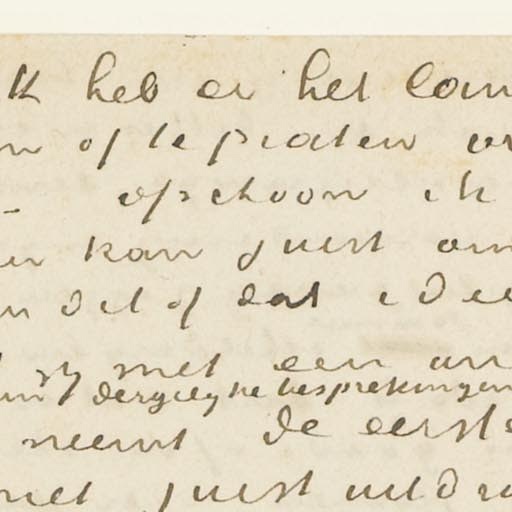 k heb er het
of te praten
- ofschoon ik
kan juist om
dit of dat idee
zij met een
dergelijke besprekingen
neemt de eerste
niet juist uitdru